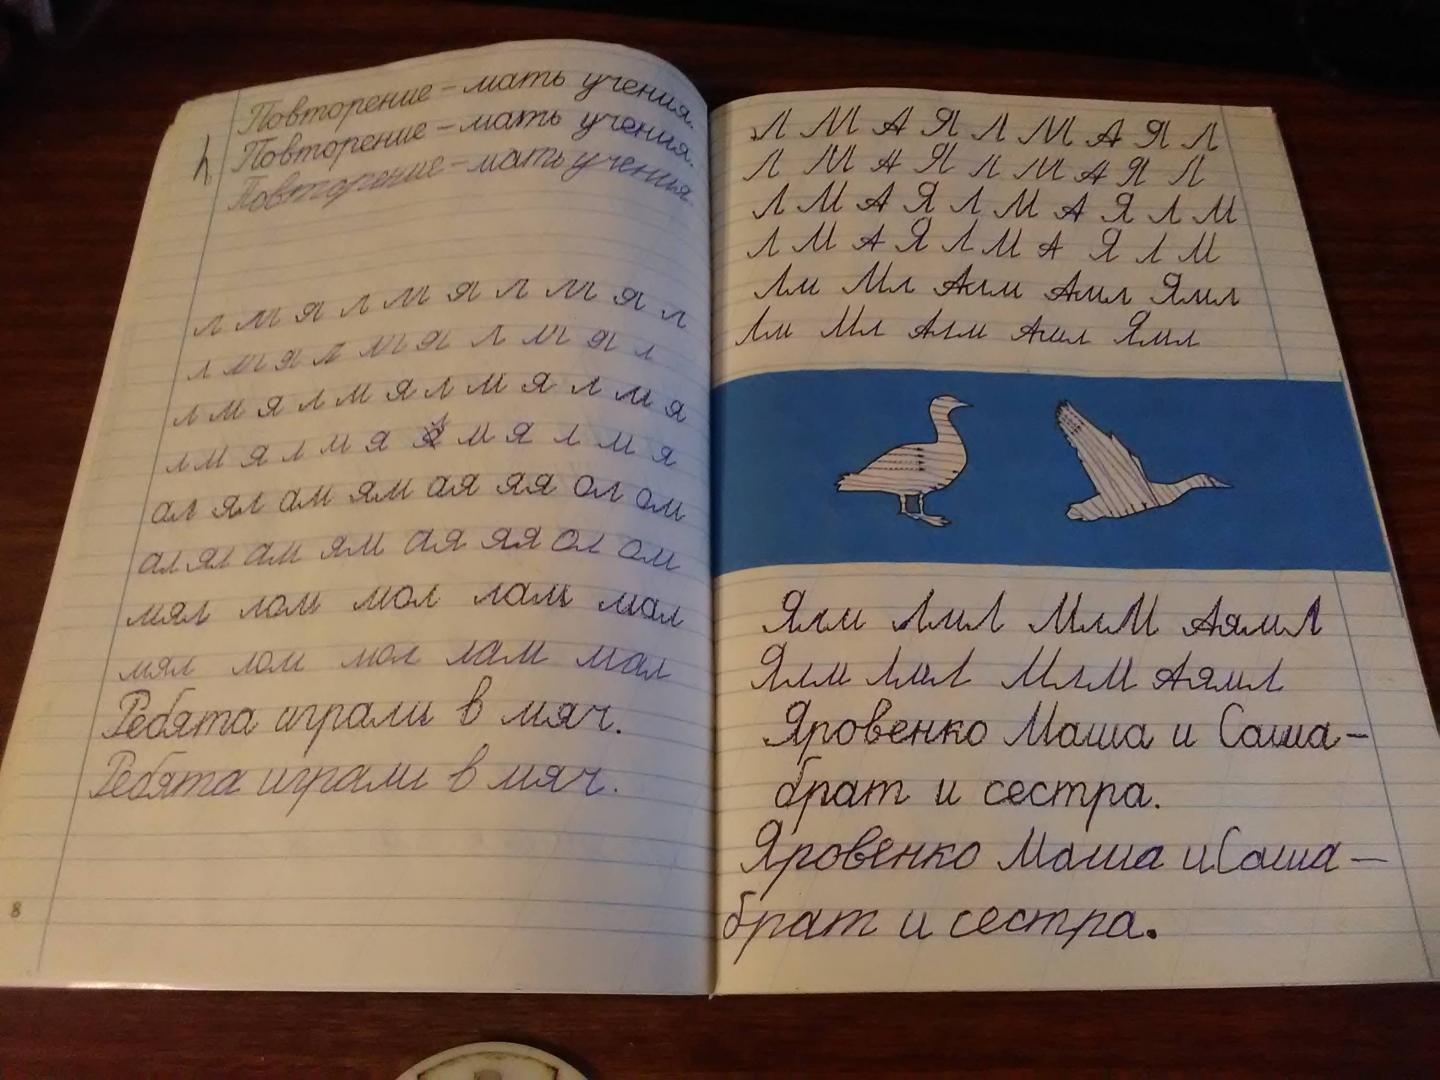 Повторение – мать учения.
Повторение – мать учения.
Повторение – мать учения.
л м я л м я л м я л
л м я л м я л м я л
л м я л м я л м я л м я
л м я л м я м я л м я
ал ял ам ям ая яя ол ом
ал ял ам ям ая яя ол ом
мял лом мол лам мал
мял лом мол лам мал
Ребята играли в мяч.
Ребята играли в мяч.
8
Л М А Я Л М А Я Л
Л М А Я Л М А Я Л
Л М А Я Л М А Я Л М
Л М А Я Л М А Я Л М
Лм Мл Алм Амл Ямл
Лм Мл Алм Амл Ямл
Ялм ЛмЛ МлМ АямЛ
Ялм ЛмЛ МлМ АямЛ
Яровенко Маша и Саша –
брат и сестра.
Яровенко Маша и Саша –
брат и сестра.